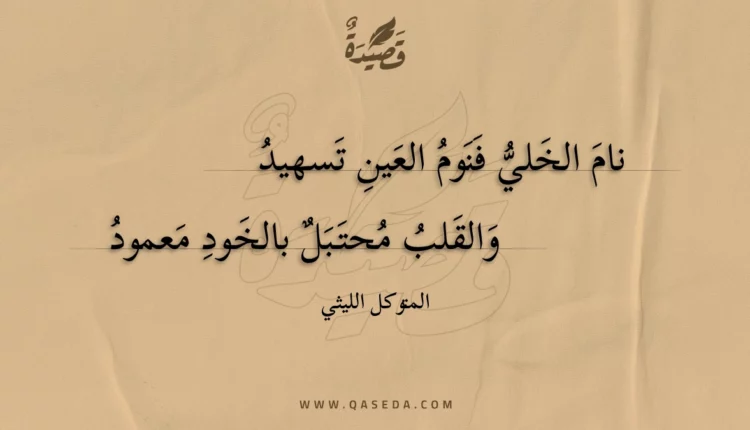 قَصِيدَةٌ
نامَ الخَليُّ فَنَومُ العَينِ تَسهيدُ
وَالقَلبُ مُحتَبَلٌ بالخَودِ مَعمودُ
المتوكل الليثي
WWW.QASEDA.COM